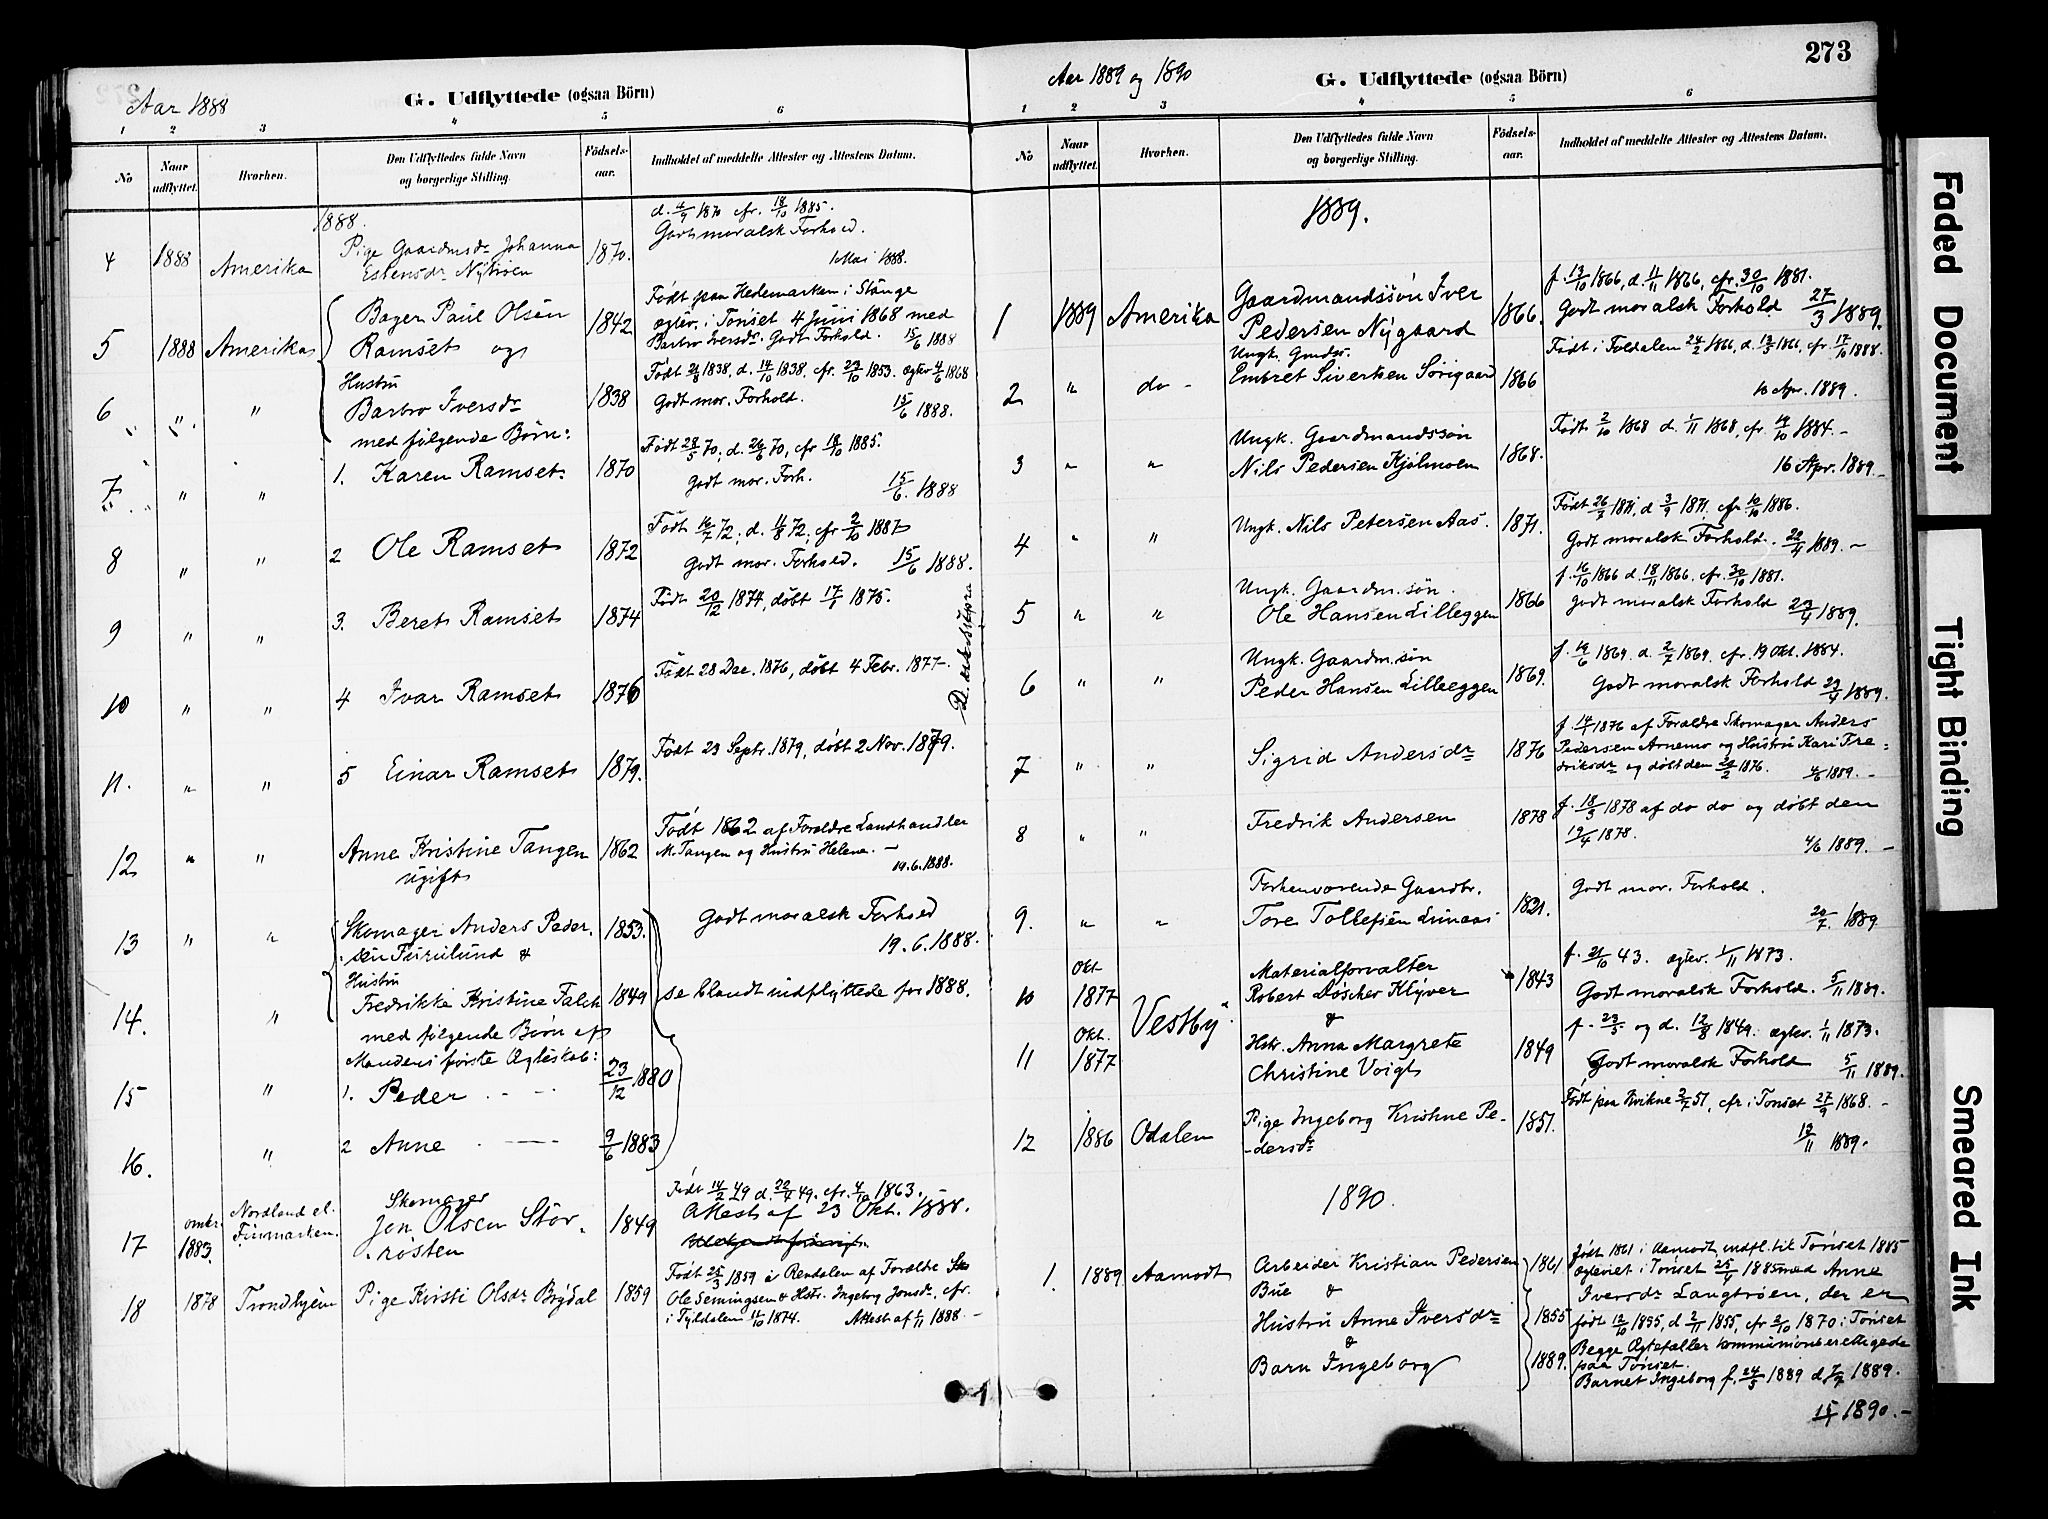 Aar 1888
G. Udflyttede (ogsaa Börn)
1 2 3 4 5 6
No
Naar udflyttet.
Hvorhen.
Den Udflyttedes fulde Navn
og borgerlige Stilling.
Födsels-
aar.
Indholdet af meddelte Attester og Attestens Datum.
1888.
d. 4/9 1870 cfr. 18/10 1885.
Godt moralsk Forhold.
4 1888 Amerika Pige Gaardmsdr. Johanna 1870. 1 Mai 1888.
Estensdr. Nytrøen
Født paa Hedemarken i Stange
5 1888 Amerika Bager Paul Olsen 1842 ægtev. i Tønset 4 Juni 1868 med
Ramset og Barbro Iversdr. Godt Forhold. 15/6 1888
Hustru Født 21/8 1838, d. 14/10 1838, cfr. 23/10 1853. ægtev 4/6 1868
6 " " Barbro Iversdr 1838 Godt mor. Forhold. 15/6 1888.
med følgende Børn:
Født 28/5 70; d. 26/6 70, cfr 18/10 1885.
7 " " 1. Karen Ramset. 1870 Godt mor. Forh. 15/6. 1888
Født 16/7 72; d. 11/8 72; cfr 2/10 1887
8 " " 2 Ole Ramset 1872 Godt mor. Forhold. 15/6 1888.
9 " " 3. Beret Ramset 1874 Født 20/12 1874, døbt 17/1 1875.
10 " " 4 Ivar Ramset 1876 Født 28 Dec. 1876, døbt 4 Febr. 1877
11. " " 5 Einar Ramset 1879. Født 23 Septr. 1879, døbt 2 Nov. 1879.
12 " " Anne Kristine Tangen 1862 Født 1862 af Forældre Landhandler
ugift M. Tangen og Hustru Helene.
19.6.1888.
13 " " Skomager Anders Peder- 1853. Godt moralsk Forhold
sen Furulund & 19.6.1888.
Hustru
14. " Fredrikke Kristine Falck 1849 se blandt indflyttede for 1888.
med følgende Børn af
Mandens første Ægteskab:
15 " 1. Peder 23/12 1880
16. " 2 Anne 9/6 1883
Født 14/2 49 d. 22/4 49. cfr. 4/10 1863.
17 omkr. 1883 Nordland el. Finmarken. Skomager Jon Olsen Stor- 1849 Attest af 23 Okt. 1888.
røsten
18 1878 Trondhjem Pige Kirsti Olsdr Brydal 1859 Født 25/3 1859 i Rendalen af Forældre
Ole Semingsen & Hstr. Ingeborg Jonsdr. cfr.
i Tyldalen 11/10 1874. Attest af 1/11 1888.
273
Aar 1889 og 1890
G. Udflyttede (ogsaa Börn)
1 2 3 4 5 6
No
Naar udflyttet.
Hvorhen.
Den Udflyttedes fulde Navn
og borgerlige Stilling.
Födsels-
aar.
Indholdet af meddelte Attester og Attestens Datum.
1889.
f. 13/10 1866, d. 11/11 1866, cfr. 30/10 1881.
1 1889 Amerika Gaardmandssøn Iver 1866. Godt moralsk Forhold 27/3 1889.
Pedersen Nygaard
Ungk. Gmdss. Født i Foldalen 24/2 1866, d. 13/5 1866, cfr. 17/10 1888.
2 " do - Embret Siversen Sørigaard 1866 10 Apr. 1889.
Ungk. Gaardmandssøn Født 2/10 1868 d. 1/11 1868, cfr. 19/10 1884.
3 " " Nils Pedersen Kjølmoen 1868. 16 Apr. 1889.
Født 26/7 1871, d 3/9 1871. cfr. 10/10 1886.
4 " " Ungk. Nils Petersen Aas. 1871. Godt moralsk Forhold. 22/4 1889.
Ungk. Gaardm.søn. f. 16/10 1866 d. 18/11 1866. cfr. 30/10 1881.
5 " " Ole Hansen Lilleeggen 1866 Godt moralsk Forhold 23/4 1889.
Ungk. Gaardm.søn f. 19/6 1869. d. 2/7 1869. cfr. 19 Okt. 1884.
6 " " Peder Hansen Lilleeggen 1869. Godt moralsk Forhold 23/4 1889.
f. 14/1 1876 af Forældre Skomager Anders
7 " " Sigrid Andersdr 1876 Pedersen Arnemo og Hustru Kari Fre-
driksdr og døbt den 20/2 1876. 4/6 1889.
8 " " Fredrik Andersen 1878 f. 18/3 1878 af do do og døbt den
19/4 1878. 4/6 1889.
Forhenværende Gaardbr. Godt mor. Forhold.
9. " " Tore Tollefsen Lunaas 1821. 20/7. 1889.
Okt. Materialforvalter f. 21/10 43. ægtev. 1/11 1873.
10 1877 Vestby Robert Løscher Klyver 1843 Godt moralsk Forhold. 5/11 1889.
&
Okt. f. 23/5 og d. 12/8 1849. ægtev. 1/11 1873.
11 1877 Hstr. Anna Margrete 1849 Godt moralsk Forhold 5/11 1889.
Christine Voigt
12 1886 Odalen Pige Ingeborg Kristine Pe- 1851. Født paa Kvikne 2/7 51, cfr. i Tønset 27/9 1868.
-dersdr 13/11 1889.
1890.
1. 1889 Aamodt Arbeider Kristian Pedersen 1861 Født 1861 i Aamodt, indfl. til Tønset 1885
Bue & ægteviet i Tønset 25/4 1885 med Anne
Iversdr Langtrøen, der er
Hustru Anne Iversdr 1855 født 12/10 1855, d 2/11 1855, cfr 2/10 1870 i Tønset
& Begge Ægtefæller kommunionsberettigede
Barn Ingeborg 1889. paa Tønset.
Barnet Ingeborg f. 24/5 1889 d. 7/7 1889.
15/1 1890.
Faded Document
Tight Binding
Smeared Ink